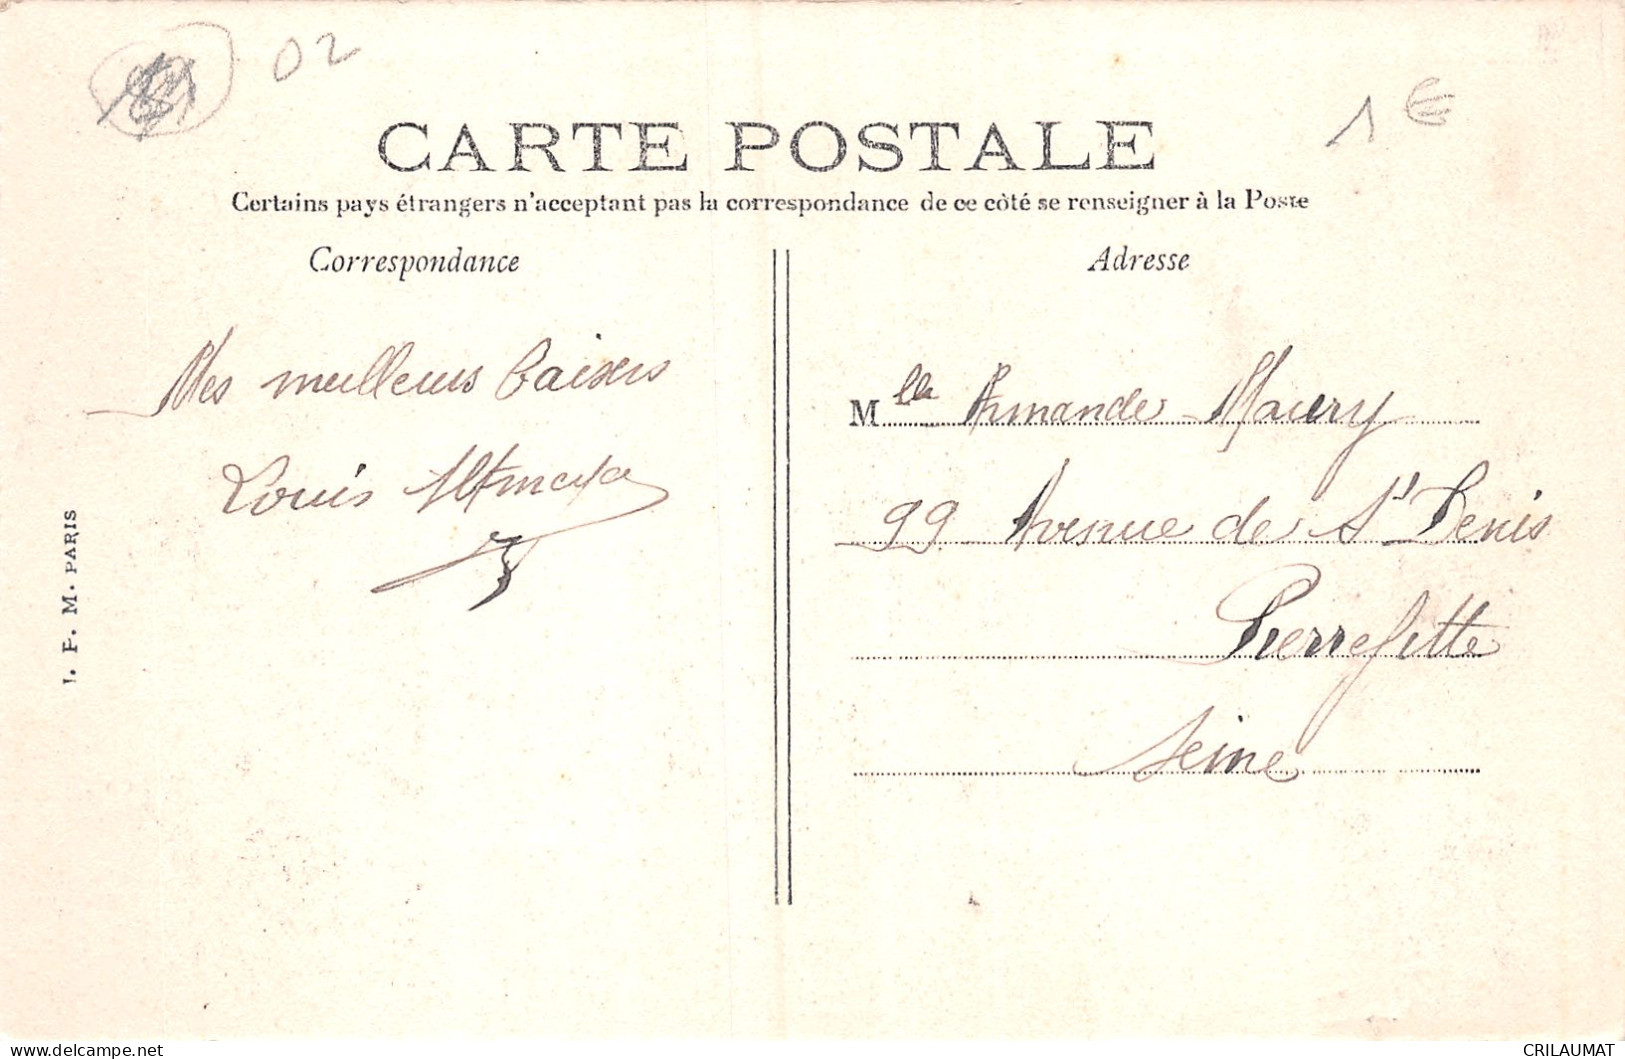 02
1 €
CARTE POSTALE
Certains pays étrangers n'acceptent pas la correspondance de ce côté se renseigner à la Poste
Correspondance
Mes meilleurs baisers
Louis
J. F. M. PARIS
Adresse
Mlle Armande Maury
99 Avenue de St Denis
Pierrefitte
Seine
CRILAUMAT